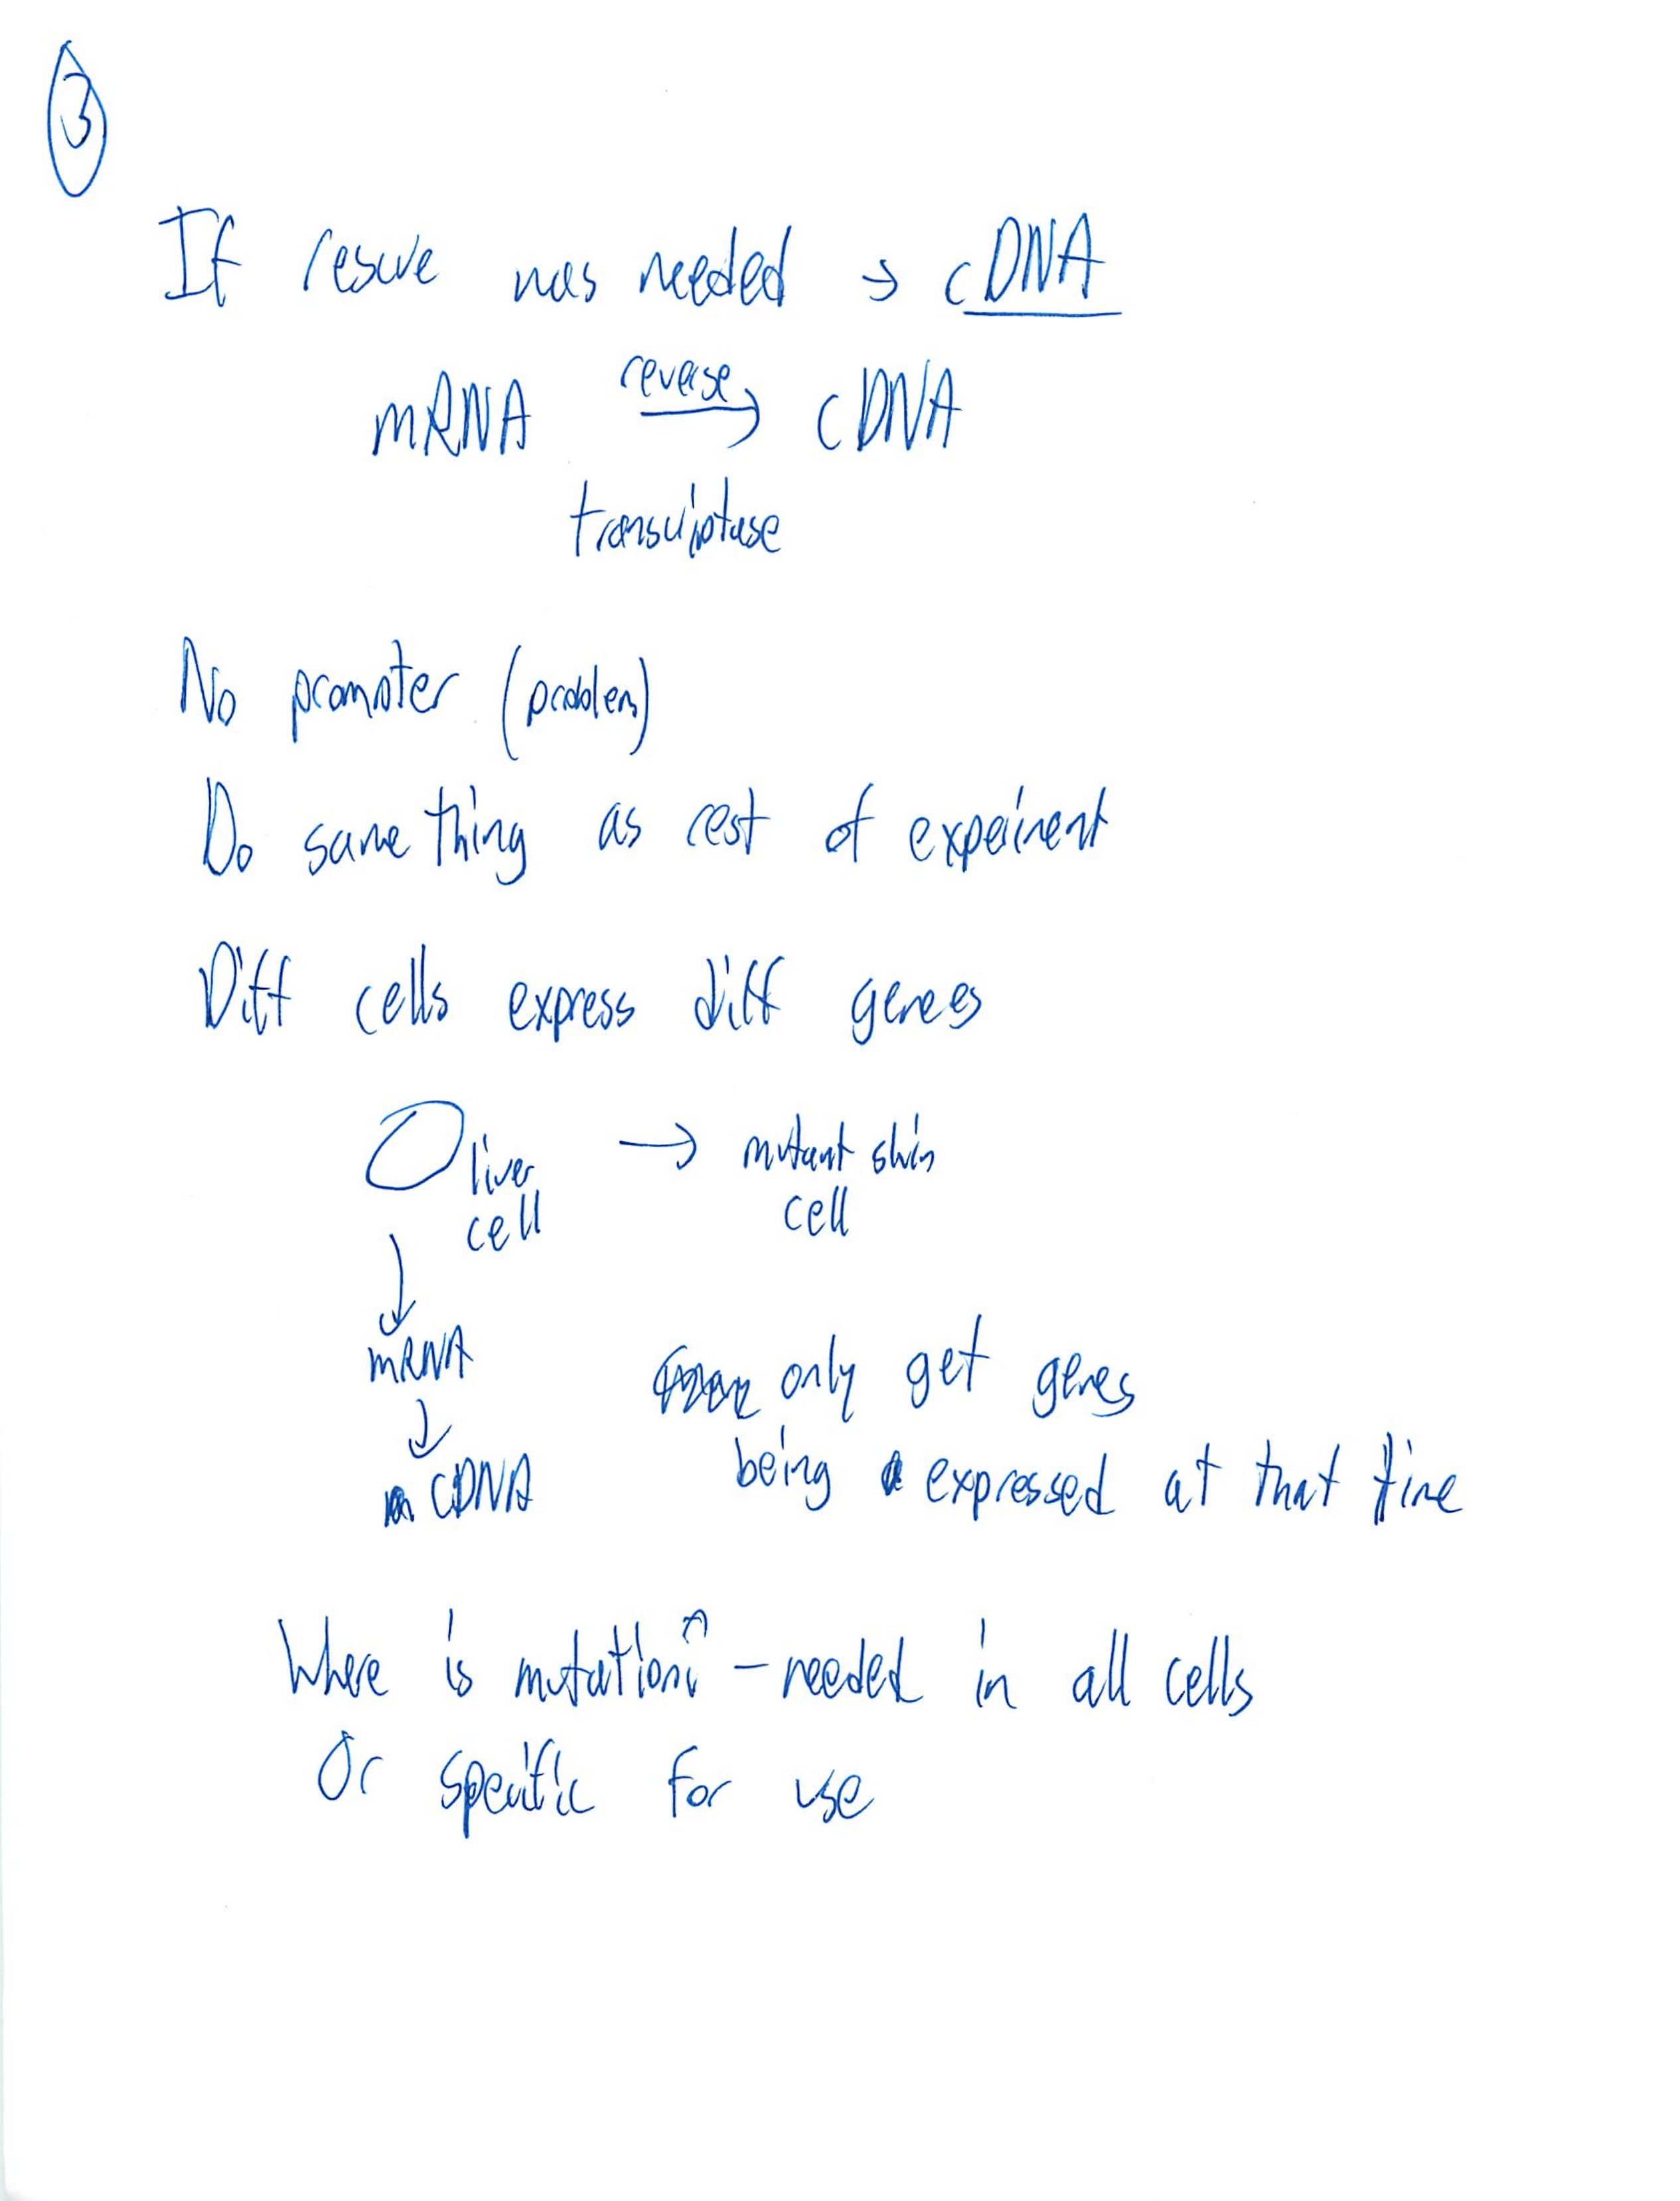 3
If rescue was needed → cDNA
mRNA reverse → cDNA
transcriptase
No promoter (problem)
Do same thing as rest of experiment
Diff cells express diff genes
liver cell → mutant skin cell
↓
mRNA
↓
cDNA
only get genes
being expressed at that time
Where is mutation - needed in all cells
Or specific for use